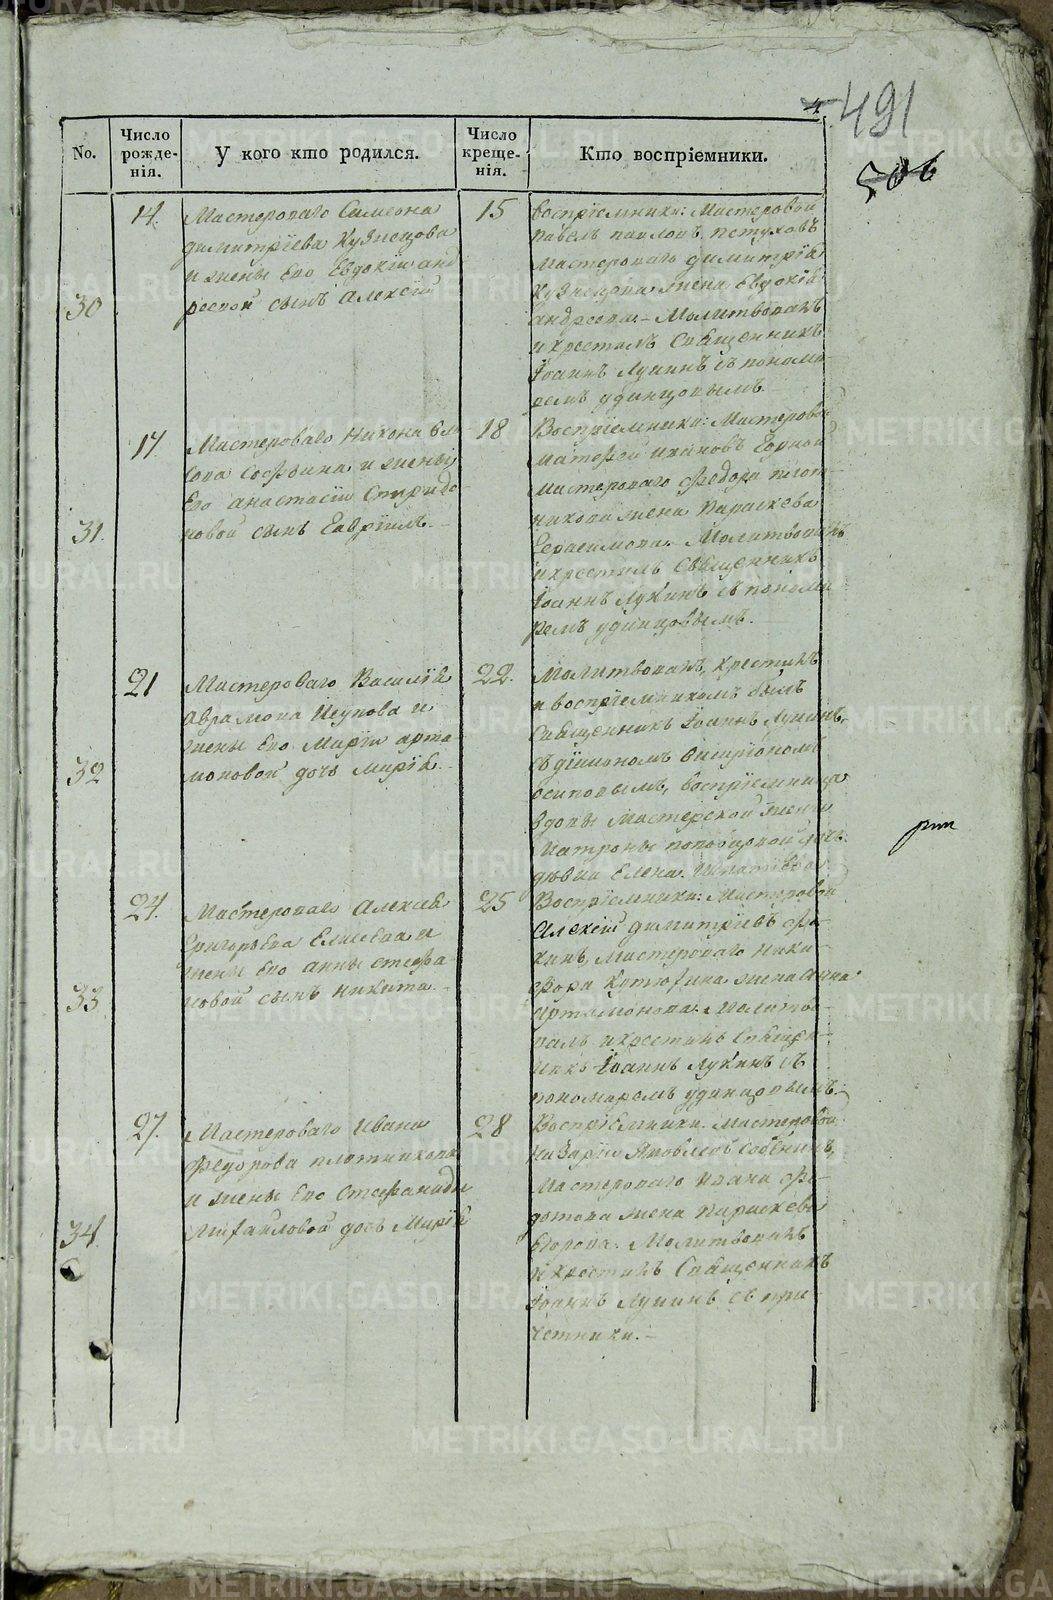 491
506
4.
No.
Число рожде-нія.
У кого кто родился.
Число креще-нія.
Кто воспріемники.
30
14.
Мастероваго Симеона
димитріева Кузнецова
и жены Его Евдокіи анд
реевой сынъ Алексій
15
воспріемники: Мастеровой
павелъ павловъ петуховъ
Мастероваго димитрія
Кузнецова жена Евдокія
андреева. Молитвовалъ
и крестилъ Священникъ
Іоаннъ Лукинъ съ понома
ремъ удинцовымъ.
31.
17.
Мастероваго Никона
и жены
Его анастасіи Спиридо
новой сынъ Гавріилъ.
18
Воспріемники: Мастеровой
Матфей ивановъ
Мастероваго Федора плот
никова жена Параскева
Герасимова. Молитвовалъ
и крестилъ Священникъ
Іоаннъ Лукинъ съ понома
ремъ удинцовымъ.
32
21
Мастероваго Василія
аврамова и
жены Его Маріи арта
моновой дочь Марія.
22.
Молитвовалъ, крестилъ
и воспріемникомъ былъ
Священникъ Іоаннъ Лукинъ,
съ діакономъ
осиповымъ, воспріемница
вдовы Мастерской жены
Матроны дочь
девка Елена
33
24.
Мастероваго Алексія
Григорьева Елисеева и
жены Его анны стефа
новой сынъ никита.
25
Воспріемники: Мастеровой
Алексій димитріевъ Фо
кинъ, Мастероваго Ники
фора жена анна
Артамонова. Молитво
валъ и крестилъ Священ
никъ Іоаннъ Лукинъ съ
пономаремъ удинцовымъ.
34.
27.
Мастероваго Ивана
Федорова плотникова
и жены Его Стефаниды
Михаиловой дочь Марія
28
Воспріемники. Мастеровой
Назарій Яковлевъ
Мастероваго Ивана Фе
дотова жена Параскева
Егорова. Молитвовалъ
и крестилъ Священникъ
Іоаннъ Лукинъ съ при
четники.
METRIKI.GASO-URAL.RU